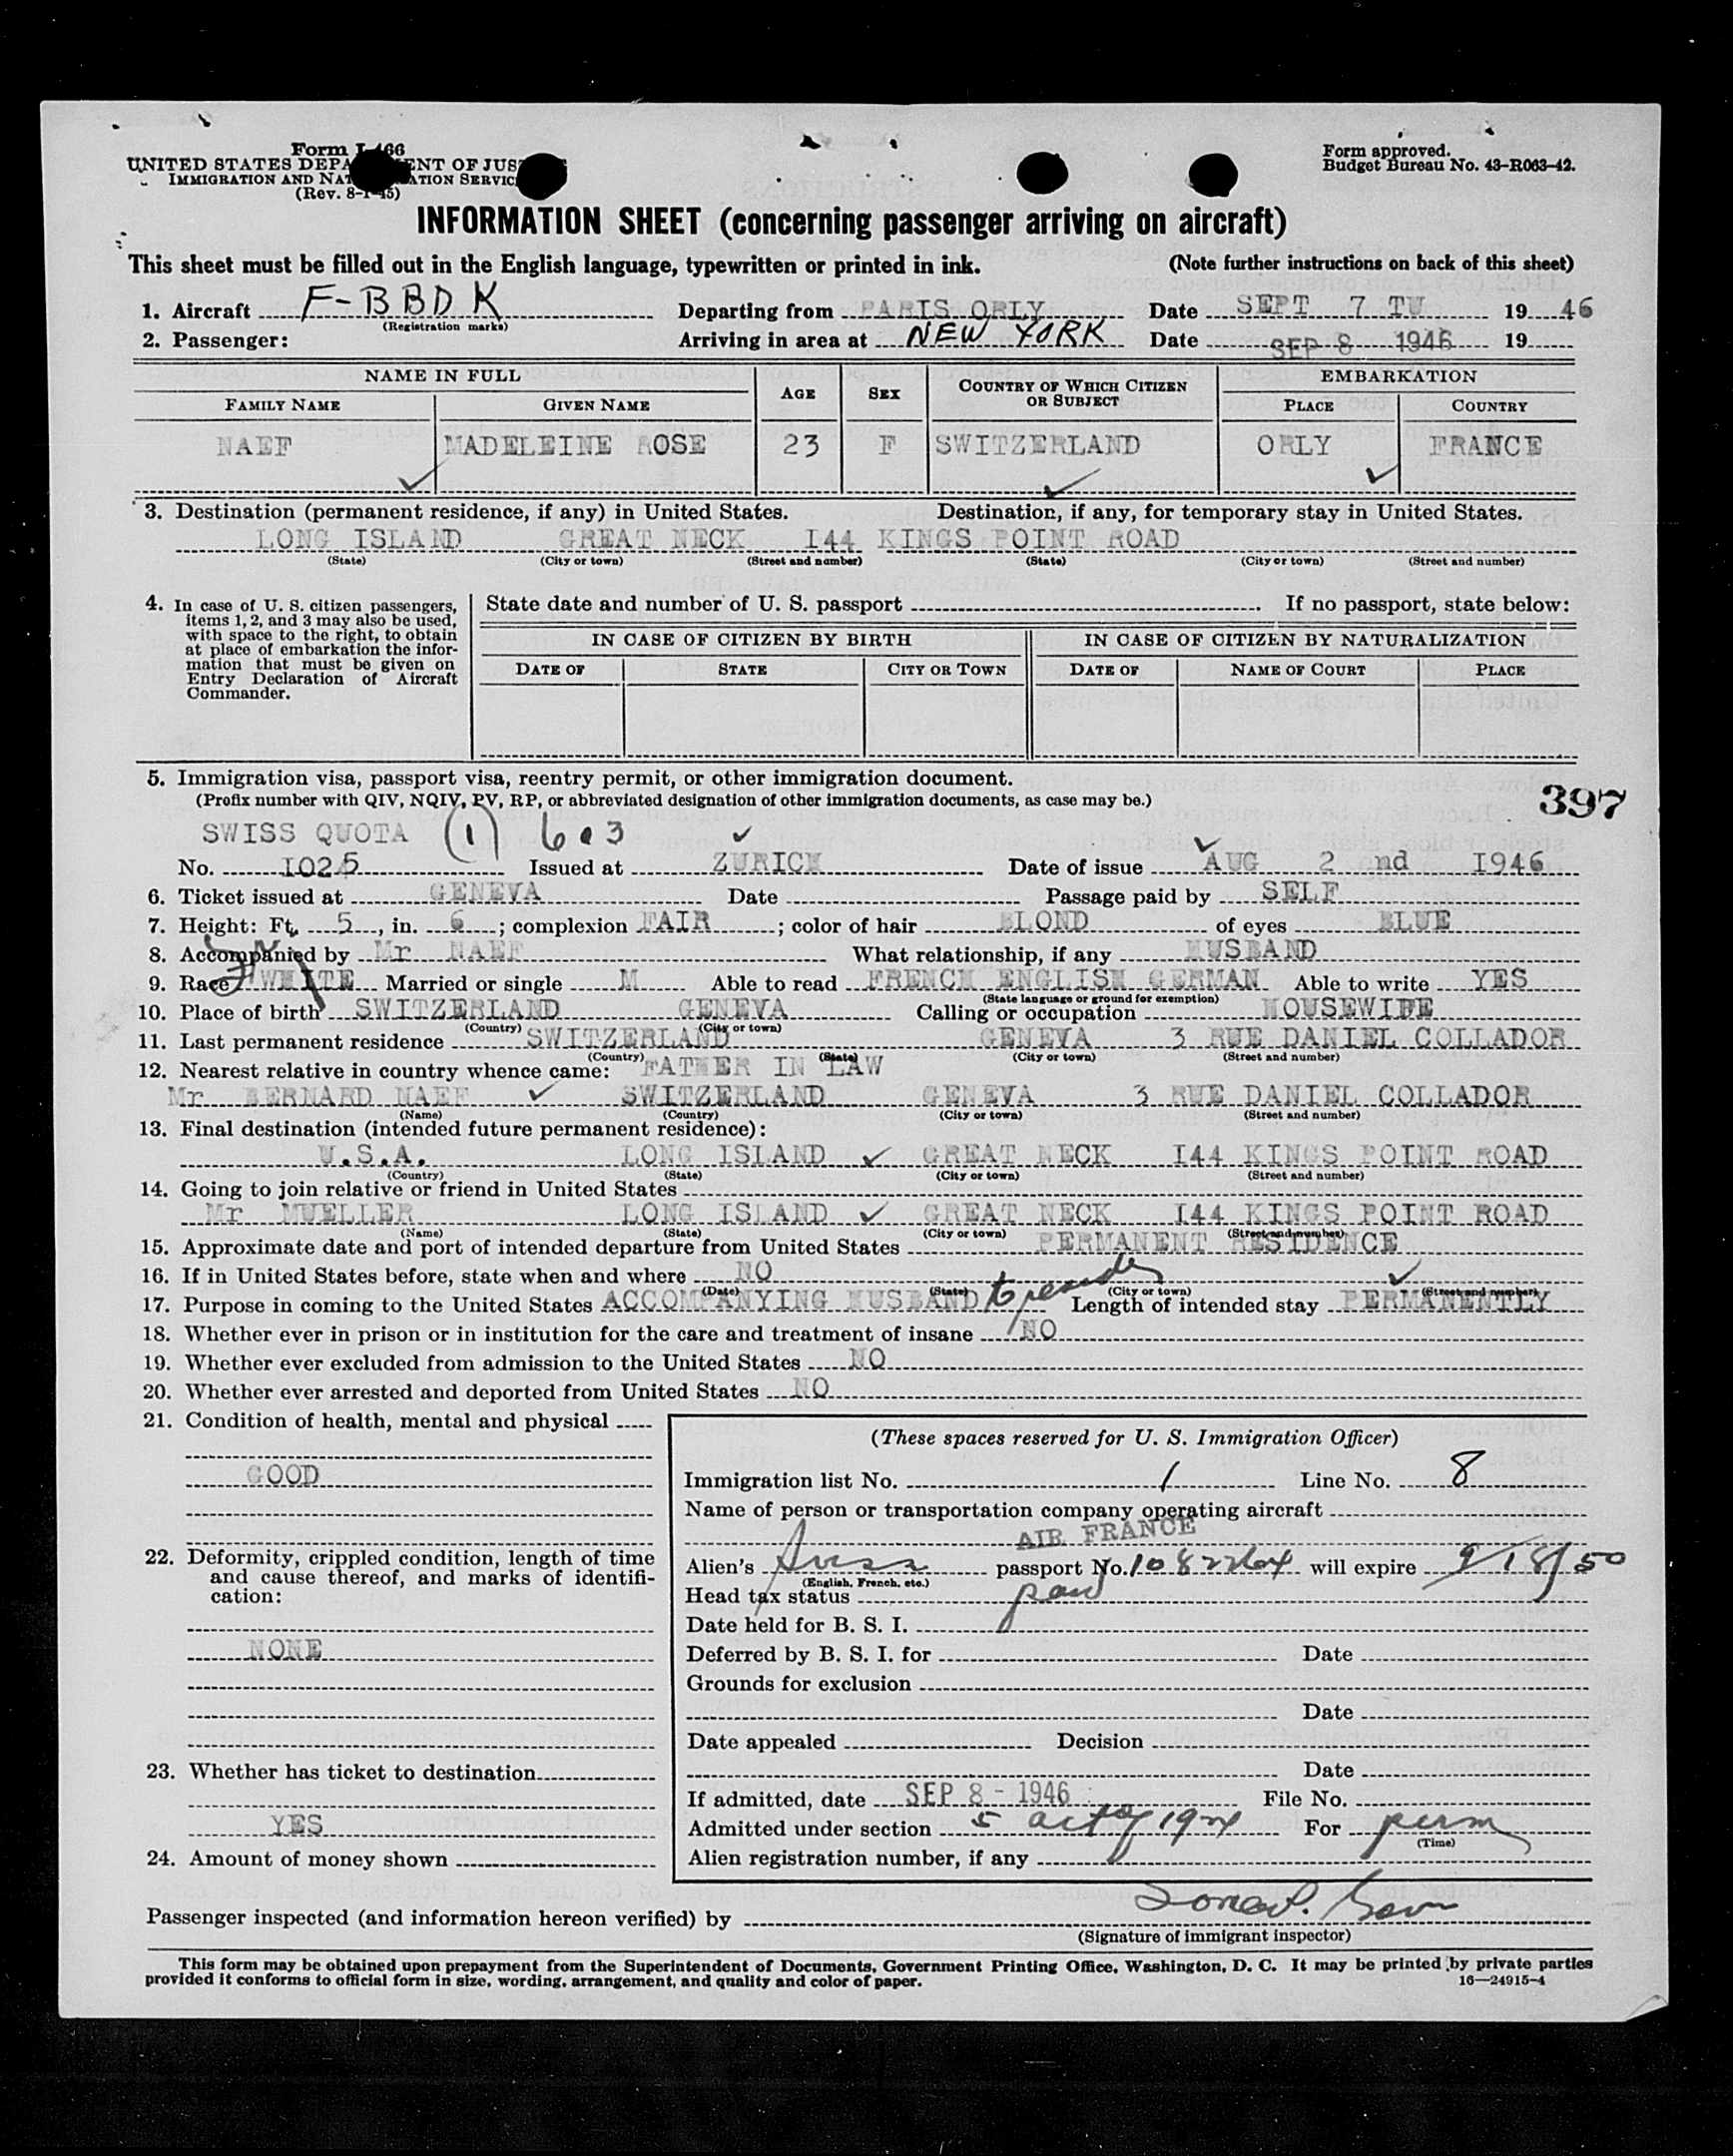 Form I-466
UNITED STATES DEPA ENT OF JUS
IMMIGRATION AND NAT ATION SERVIC
(Rev. 8-1-45)
Form approved.
Budget Bureau No. 43-R063-42.
INFORMATION SHEET (concerning passenger arriving on aircraft)
This sheet must be filled out in the English language, typewritten or printed in ink. (Note further instructions on back of this sheet)
1. Aircraft F-BBDK Departing from PARIS ORLY Date SEPT 7 TU 19 46
(Registration marks)
2. Passenger: Arriving in area at NEW YORK Date SEP 8 1946 19
NAME IN FULL AGE SEX COUNTRY OF WHICH CITIZEN OR SUBJECT EMBARKATION
FAMILY NAME GIVEN NAME PLACE COUNTRY
NAEF MADELEINE ROSE 23 F SWITZERLAND ORLY FRANCE
3. Destination (permanent residence, if any) in United States. Destination, if any, for temporary stay in United States.
LONG ISLAND GREAT NECK I44 KINGS POINT ROAD
(State) (City or town) (Street and number) (State) (City or town) (Street and number)
4. In case of U. S. citizen passengers,
items 1, 2, and 3 may also be used,
with space to the right, to obtain
at place of embarkation the infor-
mation that must be given on
Entry Declaration of Aircraft
Commander.
State date and number of U. S. passport If no passport, state below:
IN CASE OF CITIZEN BY BIRTH IN CASE OF CITIZEN BY NATURALIZATION
DATE OF STATE CITY OR TOWN DATE OF NAME OF COURT PLACE
5. Immigration visa, passport visa, reentry permit, or other immigration document.
(Prefix number with QIV, NQIV, PV, RP, or abbreviated designation of other immigration documents, as case may be.)
397
SWISS QUOTA (1) 603
No. I025 Issued at ZURICH Date of issue AUG 2 nd I946
6. Ticket issued at GENEVA Date Passage paid by SELF
7. Height: Ft. 5, in. 6; complexion FAIR; color of hair BLOND of eyes BLUE
8. Accompanied by Mr NAEF What relationship, if any HUSBAND
9. Race WHITE Married or single M Able to read FRENCH ENGLISH GERMAN Able to write YES
(State language or ground for exemption)
10. Place of birth SWITZERLAND GENEVA Calling or occupation HOUSEWIFE
(Country) (City or town)
11. Last permanent residence SWITZERLAND GENEVA 3 RUE DANIEL COLLADOR
(Country) (State) (City or town) (Street and number)
12. Nearest relative in country whence came: FATHER IN LAW
Mr BERNARD NAEF SWITZERLAND GENEVA 3 RUE DANIEL COLLADOR
(Name) (Country) (City or town) (Street and number)
13. Final destination (intended future permanent residence):
U.S.A. LONG ISLAND GREAT NECK I44 KINGS POINT ROAD
(Country) (State) (City or town) (Street and number)
14. Going to join relative or friend in United States
Mr MUELLER LONG ISLAND GREAT NECK I44 KINGS POINT ROAD
(Name) (State) (City or town) (Street and number)
15. Approximate date and port of intended departure from United States PERMANENT RESIDENCE
16. If in United States before, state when and where NO
(Date) (State) (City or town) (Street and number)
17. Purpose in coming to the United States ACCOMPANYING HUSBAND to reside Length of intended stay PERMANENTLY
18. Whether ever in prison or in institution for the care and treatment of insane NO
19. Whether ever excluded from admission to the United States NO
20. Whether ever arrested and deported from United States NO
21. Condition of health, mental and physical
GOOD
22. Deformity, crippled condition, length of time
and cause thereof, and marks of identifi-
cation:
NONE
23. Whether has ticket to destination
YES
24. Amount of money shown
(These spaces reserved for U. S. Immigration Officer)
Immigration list No. 1 Line No. 8
Name of person or transportation company operating aircraft
AIR FRANCE
Alien's Swiss passport No. 1082264 will expire 9/18/50
(English, French, etc.)
Head tax status paid
Date held for B. S. I.
Deferred by B. S. I. for Date
Grounds for exclusion
Date
Date appealed Decision
Date
If admitted, date SEP 8 - 1946 File No.
Admitted under section 5 act of 1924 For perm
(Time)
Alien registration number, if any
Passenger inspected (and information hereon verified) by
(Signature of immigrant inspector)
This form may be obtained upon prepayment from the Superintendent of Documents, Government Printing Office, Washington, D. C. It may be printed by private parties
provided it conforms to official form in size, wording, arrangement, and quality and color of paper. 16—24915-4